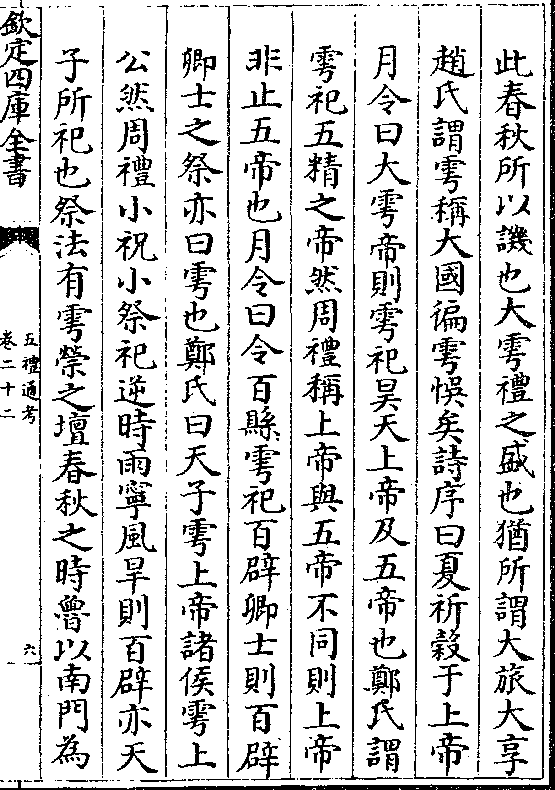 此春秋所以譏也大雩禮之盛也猶所謂大旅大享
趙氏謂雩稱大國徧雩悞矣詩序曰夏祈穀于上帝
月令曰大雩帝則雩祀昊天上帝及五帝也鄭氏謂
雩祀五精之帝然周禮稱上帝與五帝不同則上帝
非止五帝也月令曰令百縣雩祀百辟卿士則百辟
卿士之祭亦曰雩也鄭氏曰天子雩上帝諸侯雩上
公然周禮小祝小祭祀逆時雨寧風旱則百辟亦天
子所祀也祭法有雩禜之壇春秋之時魯以南門為
欽定四庫全書
五禮通考
卷二十二
六